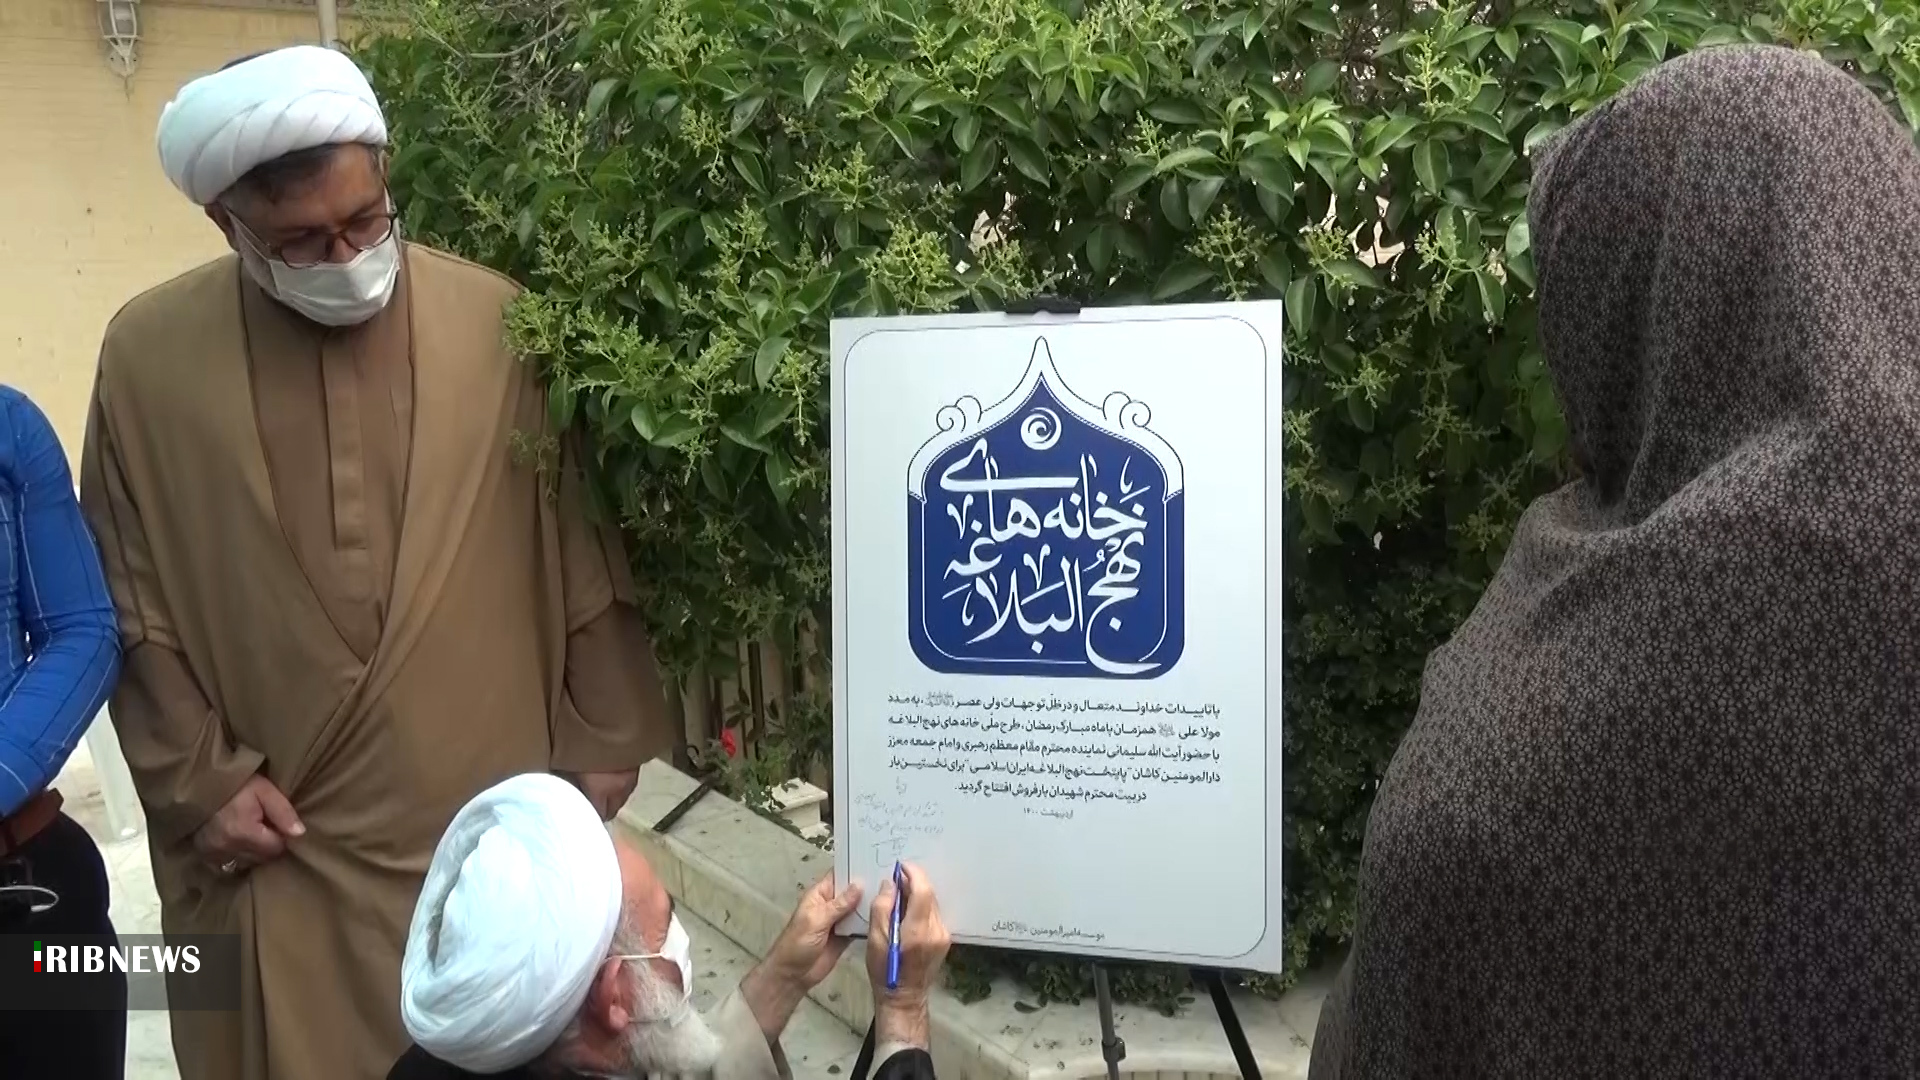 خانه‌های
نهج البلاغه
با تاییدات خداوند متعال و در ظلّ توجهات ولی عصر، به مدد
مولا علی همزمان با ماه مبارک رمضان، طرح ملّی خانه های نهج البلاغه
با حضور آیت الله سلیمانی نماینده محترم مقام معظم رهبری و امام جمعه معزز
دارالمومنین کاشان "پایتخت نهج البلاغه ایران اسلامی" برای نخستین بار
در بیت محترم شهیدان بارفروش افتتاح گردید.
اردیبهشت ۱۴۰۰
موسسه امیرالمومنین کاشان
IRIBNEWS